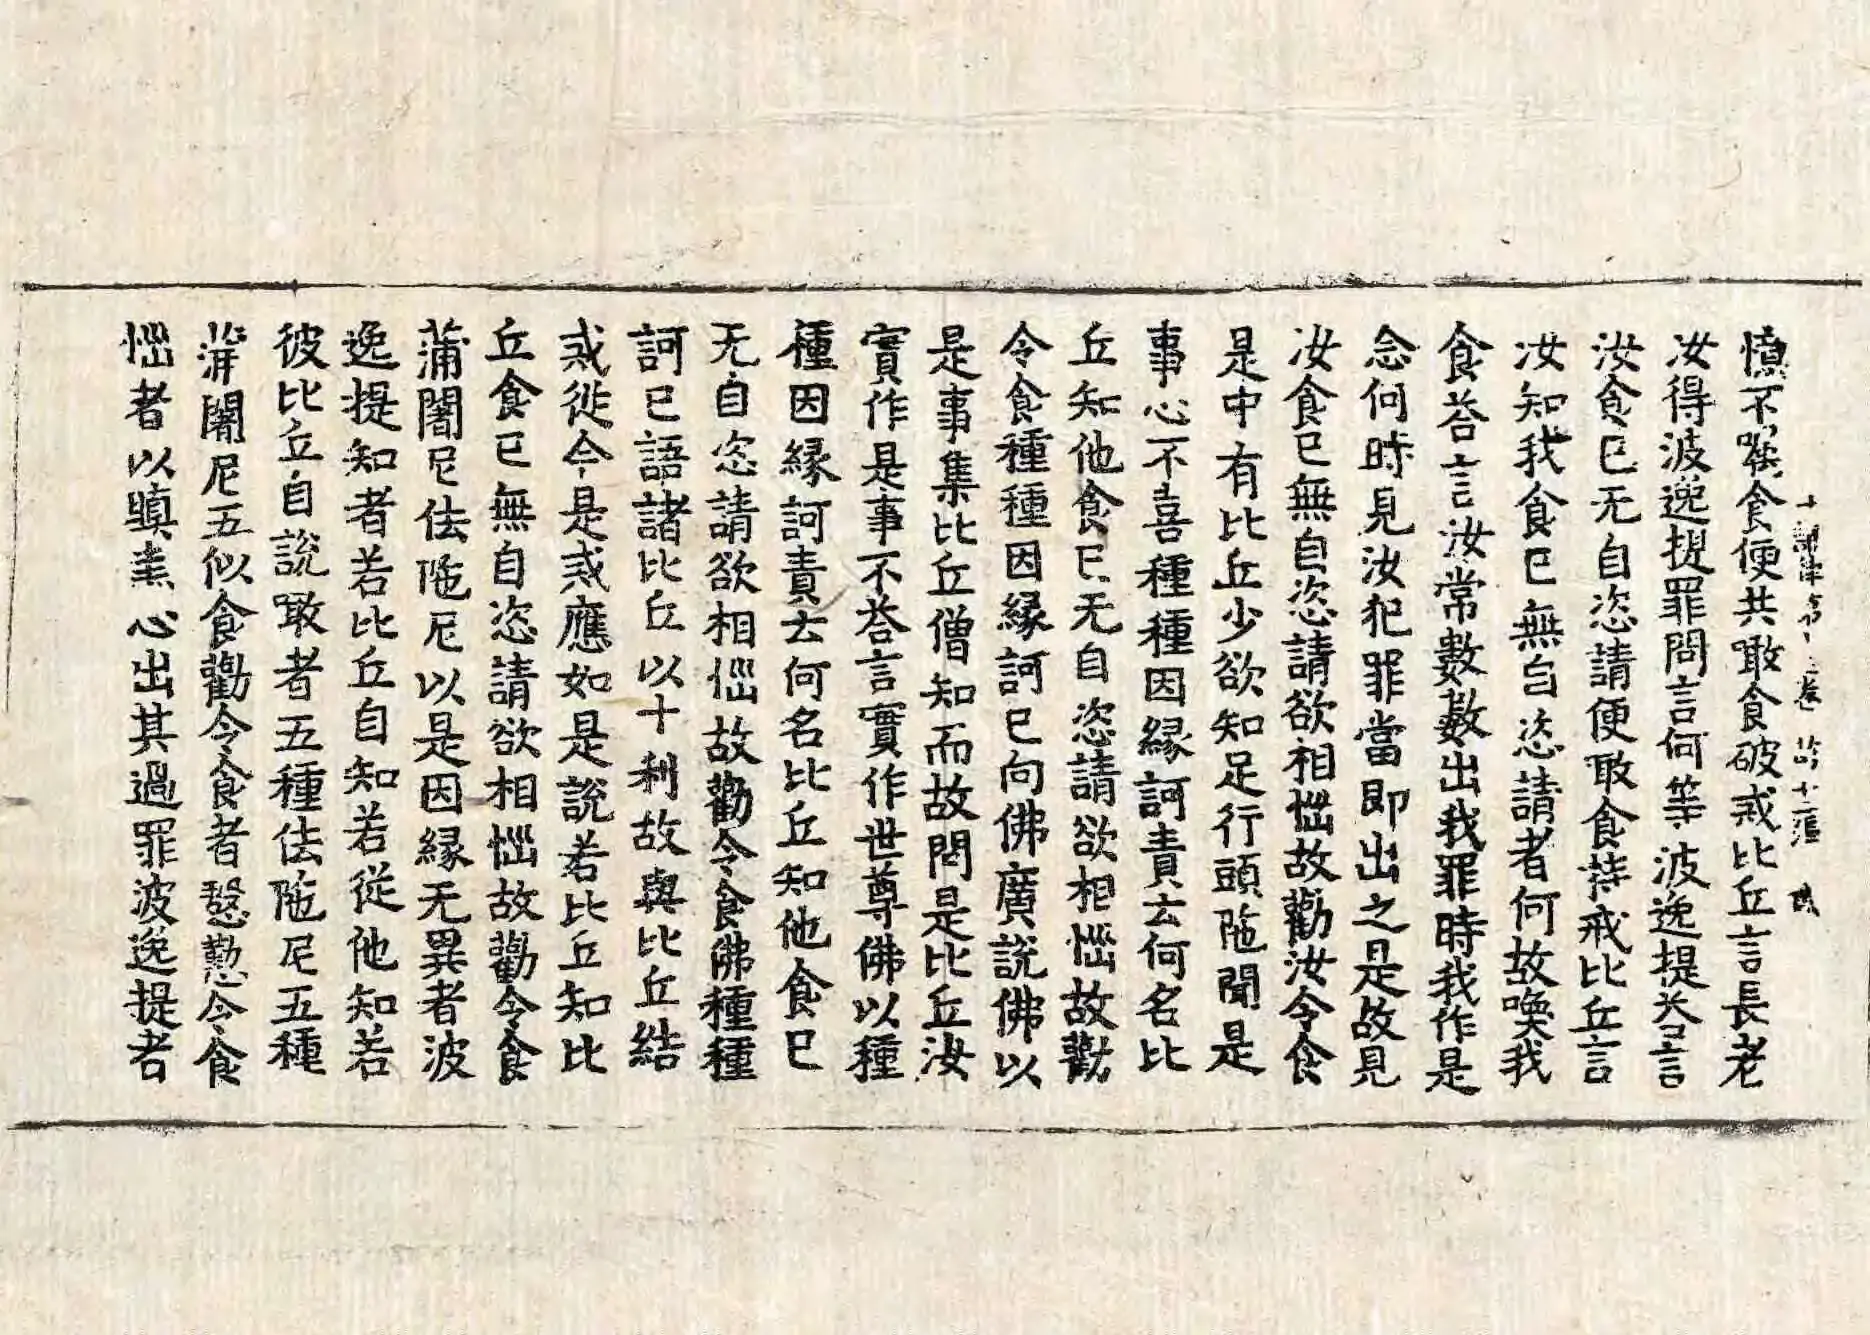 憶不喚食便共噉食破戒比丘言長老
十誦律 卷 十二 張
汝得波逸提罪問言何等波逸提荅言
汝食已无自恣請便噉食持戒比丘言
汝知我食已無自恣請者何故喚我
食荅言汝常數數出我罪時我作是
念何時見汝犯罪當即出之是故見
汝食已無自恣請欲相惱故勸汝令食
是中有比丘少欲知足行頭陁聞是
事心不喜種種因縁訶責云何名比
丘知他食已无自恣請欲相惱故勸
令食種種因縁訶已向佛廣說佛以
是事集比丘僧知而故問是比丘汝
實作是事不荅言實作世尊佛以種
種因縁訶責云何名比丘知他食已
无自恣請欲相惱故勸令食佛種種
訶已語諸比丘以十利故與比丘結
戒從今是戒應如是說若比丘知比
丘食已無自恣請欲相惱故勸令食
蒲闍尼佉陁尼以是因縁无異者波
逸提知者若比丘自知若從他知若
彼比丘自說噉者五種佉陁尼五種
蒲闍尼五似食勸令食者慇懃令食
惱者以瞋恚心出其過罪波逸提者